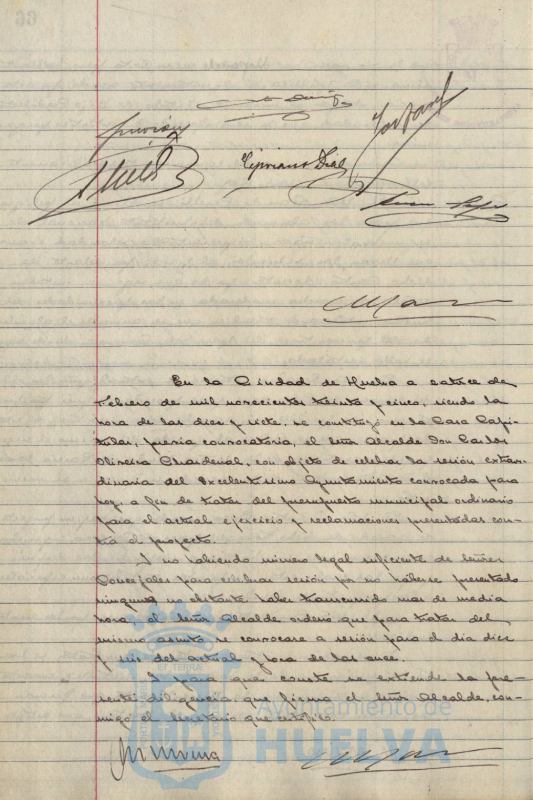 Cipriano Dial
En la Ciudad de Huelva a catorce de
Febrero de mil novecientos treinta y cinco, siendo la
hora de las diez y siete, se constituyó en la Casa Capi-
tular, previa convocatoria, el Señor Alcalde Don Carlos
Oliveira Chardenal, con objeto de celebrar la sesión extraor-
dinaria del Excelentísimo Ayuntamiento convocada para
hoy, a fin de tratar del presupuesto municipal ordinario
para el actual ejercicio y reclamaciones presentadas con-
tra el proyecto.
Y no habiendo número legal suficiente de Señores
Concejales para celebrar sesión por no haberse presentado
ninguno no obstante haber transcurrido mas de media
hora, el Señor Alcalde ordenó que para tratar del
mismo asunto se convocase a sesión para el día diez
y seis del actual y hora de las once.
Y para que conste se extiende la pre-
sente diligencia que firma el Señor Alcalde, con-
migo el Secretario que certifico.
Ayuntamiento de
HUELVA